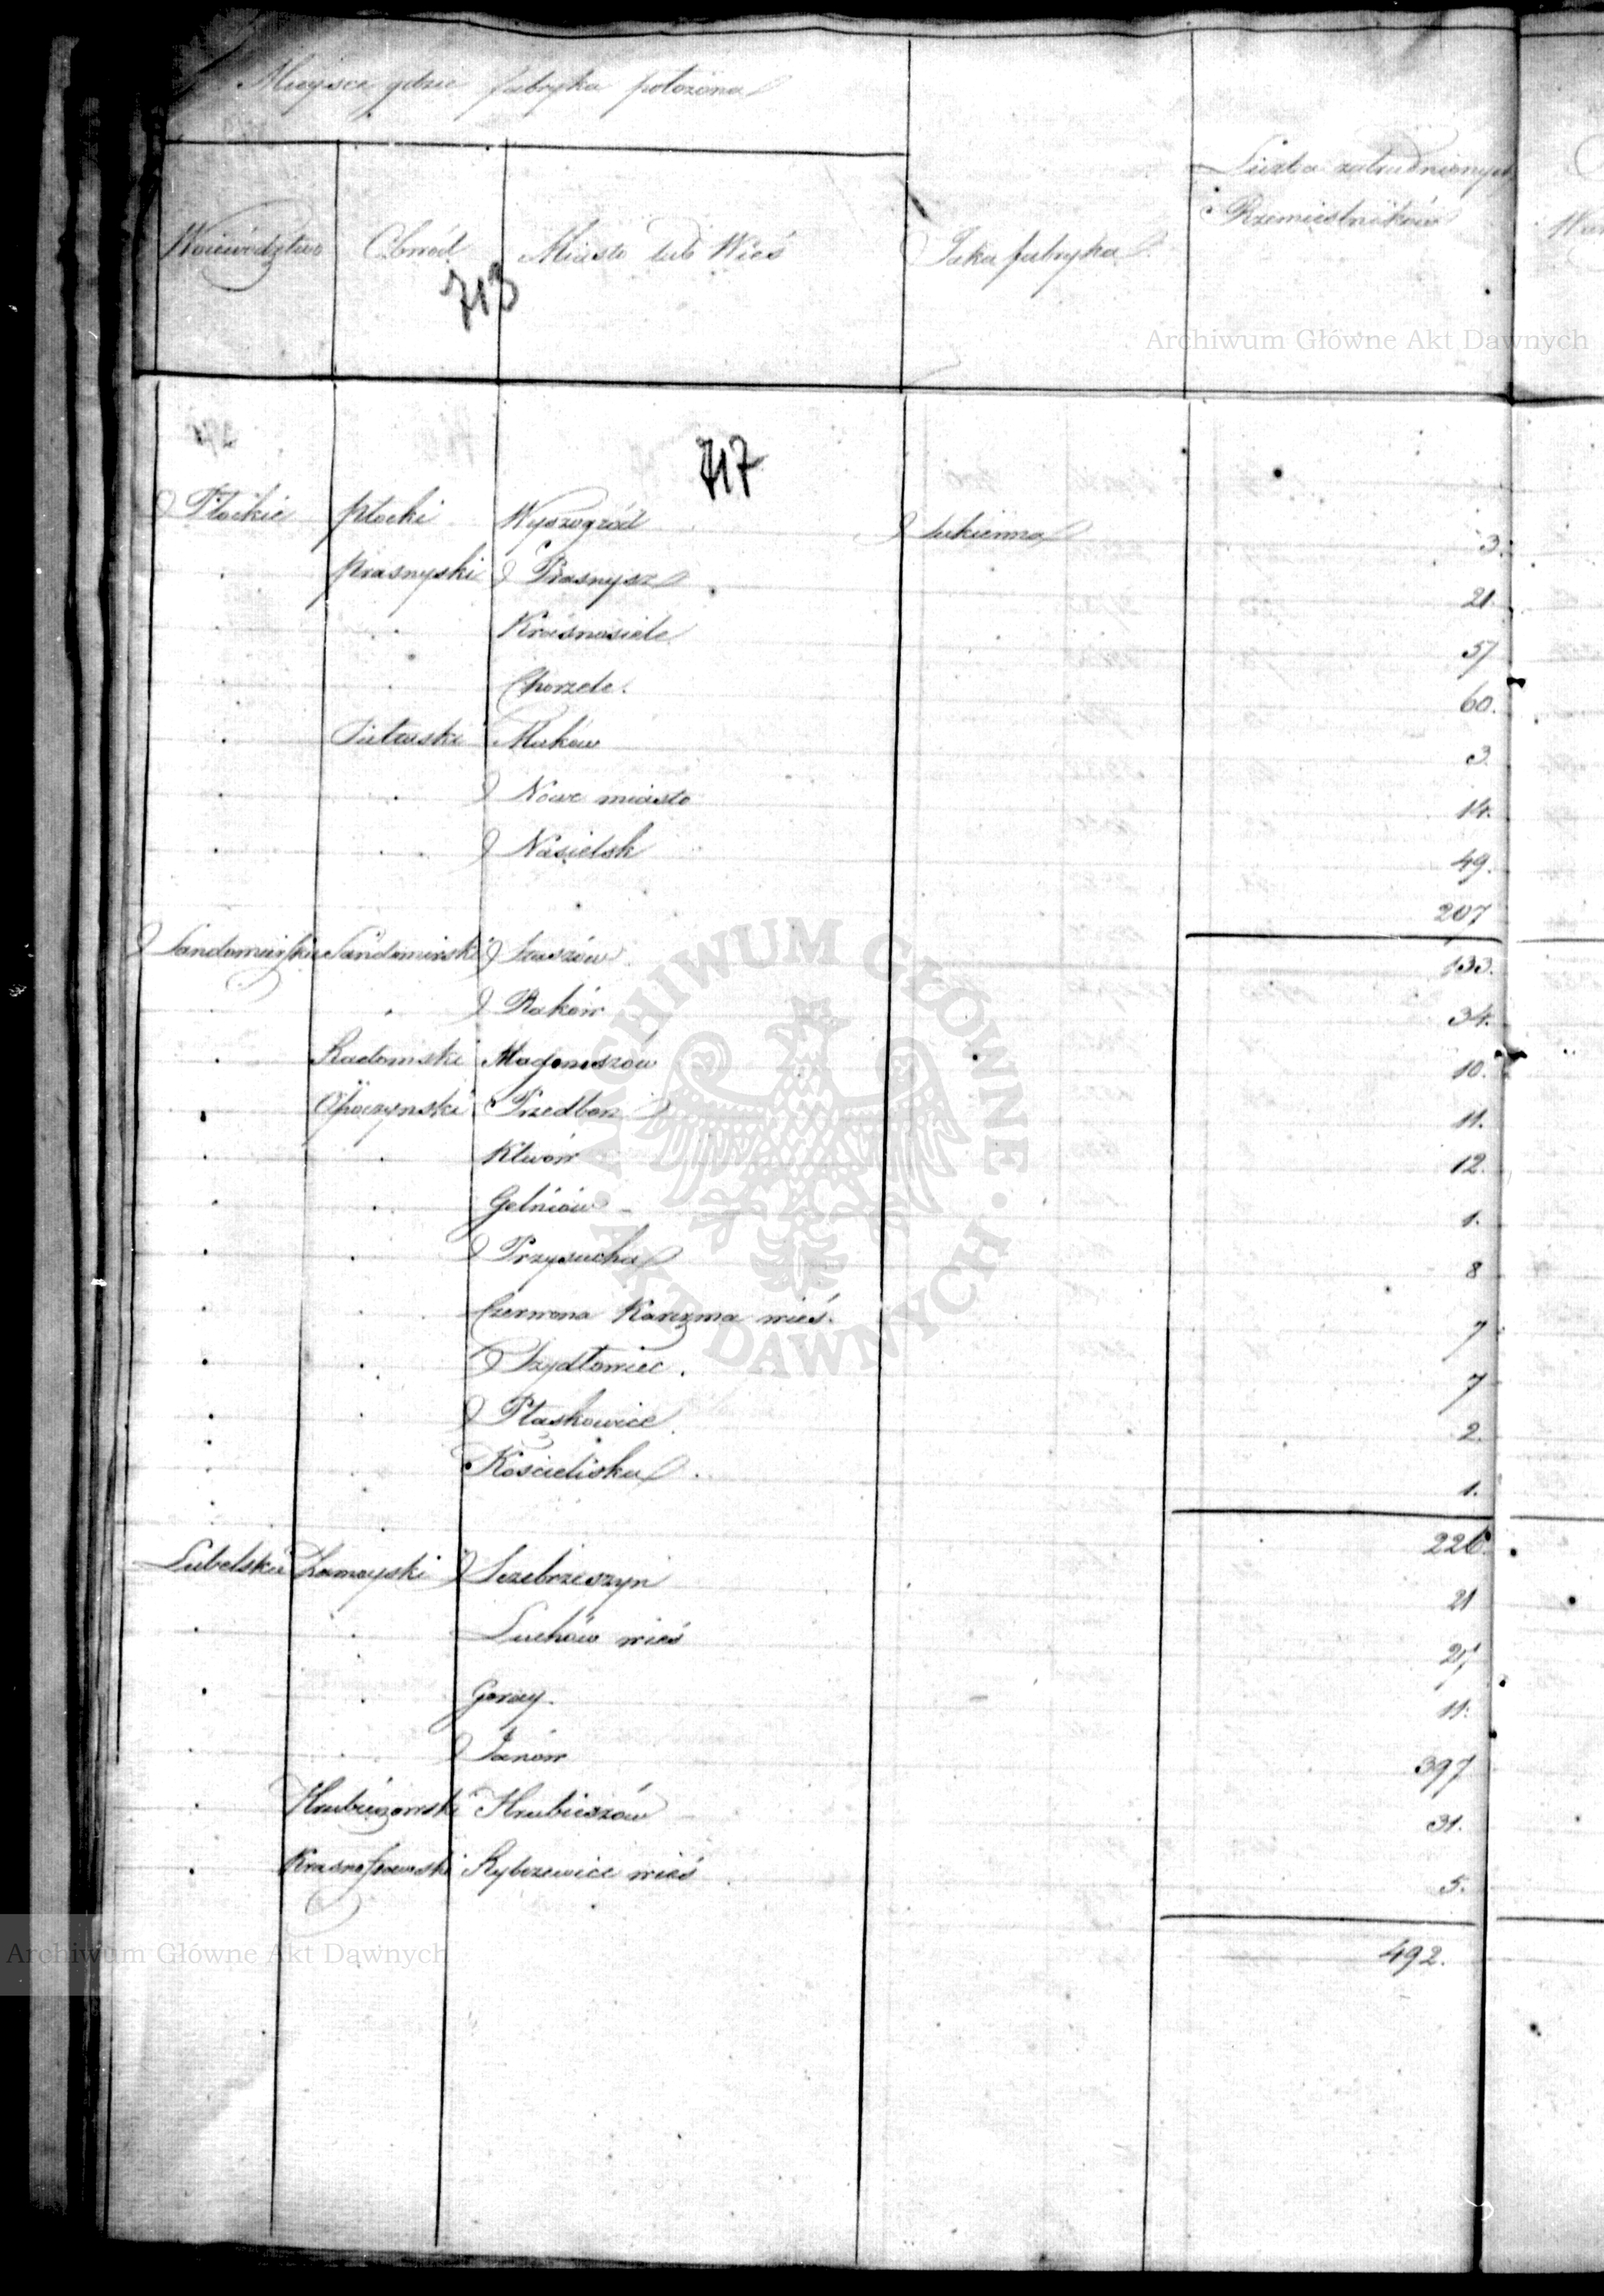 Mieysce gdzie fabryka położona
Liczba zatrudnionych
Rzemieslników
Woiewództwo Obwód Miasto lub Wieś Jaka fabryka
713
Archiwum Główne Akt Dawnych
717
Płockie Płocki Wyszogród Sukienna 3.
Prasnyski Prasnysz 21.
Krasnosielc 57
Chorzele. 60.
Pułtuski Maków 3.
Nowe miasto 14.
Nasielsk 49.
207
Sandomierskie Sandomirski Staszów 133.
Raków 34.
Radomski Magnuszów 10.
Opoczynski Przedborz 11.
Klwów 12.
Gelniów 1.
Przysucha 8
Czerwona Karczma wieś. 7
Szydłowiec. 7
Ptaskowice 2.
Kościeliska. 1.
226.
Lubelskie Zamoyski Szczebrzeszyn 21
Luchów wieś 27
Goray. 11.
Janów 397
Hrubieszowski Hrubieszów 31.
Krasnostawski Rybczewice wieś 5.
492.
Archiwum Główne Akt Dawnych
ARCHIWUM GŁÓWNE
AKT DAWNYCH